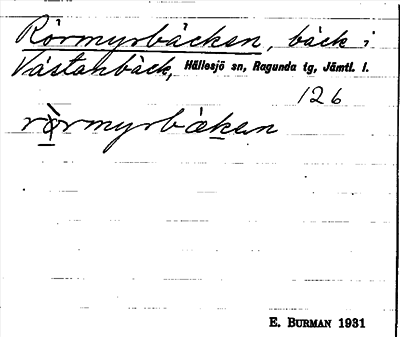 Rörmyrbäcken, bäck i
Västanbäck, Hällesjö sn, Ragunda tg, Jämtl. l.
126
rö̀rmyrbäkεn
E. BURMAN 1931